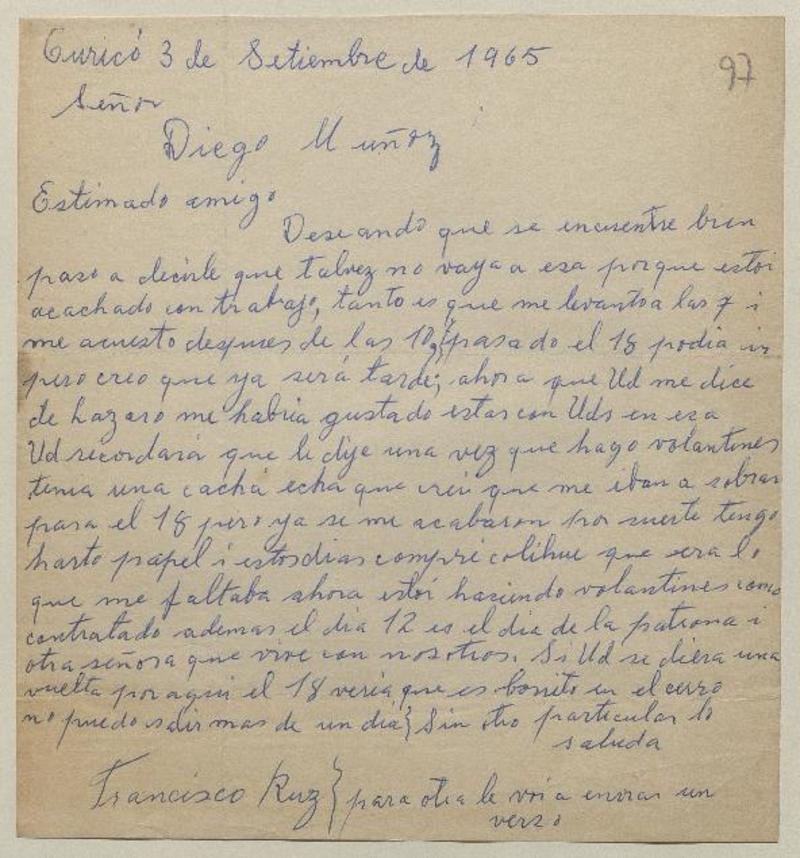 Curicó 3 de Setiembre de 1965
97
Señor
Diego Muñoz
Estimado amigo
Deseando que se encuentre bien
paso a decirle que talvez no vaya a esa porque estoi
acachado con trabajo, tanto es que me levanto a las 7 i
me acuesto despues de las 10, pasado el 18 podia ir
pero creo que ya será tarde; ahora que Ud me dice
de Lazaro me habria gustado estar con Uds en esa
Ud recordará que le dije una vez que hago volantines
tenia una cachá echa que creii que me iban a sobrar
para el 18 pero ya se me acabaron por suerte tengo
harto papel i estos dias compré colihue que era lo
que me faltaba ahora estoi haciendo volantines como
contratado ademas el dia 12 es el dia de la patrona i
otra señora que vive con nosotros. Si Ud se diera una
vuelta por aqui el 18 veria que es bonito en el cerro
no puedo salir mas de un dia} Sin otro particular lo
saluda
Francisco Ruz} para otra le voi a enviar un
verso